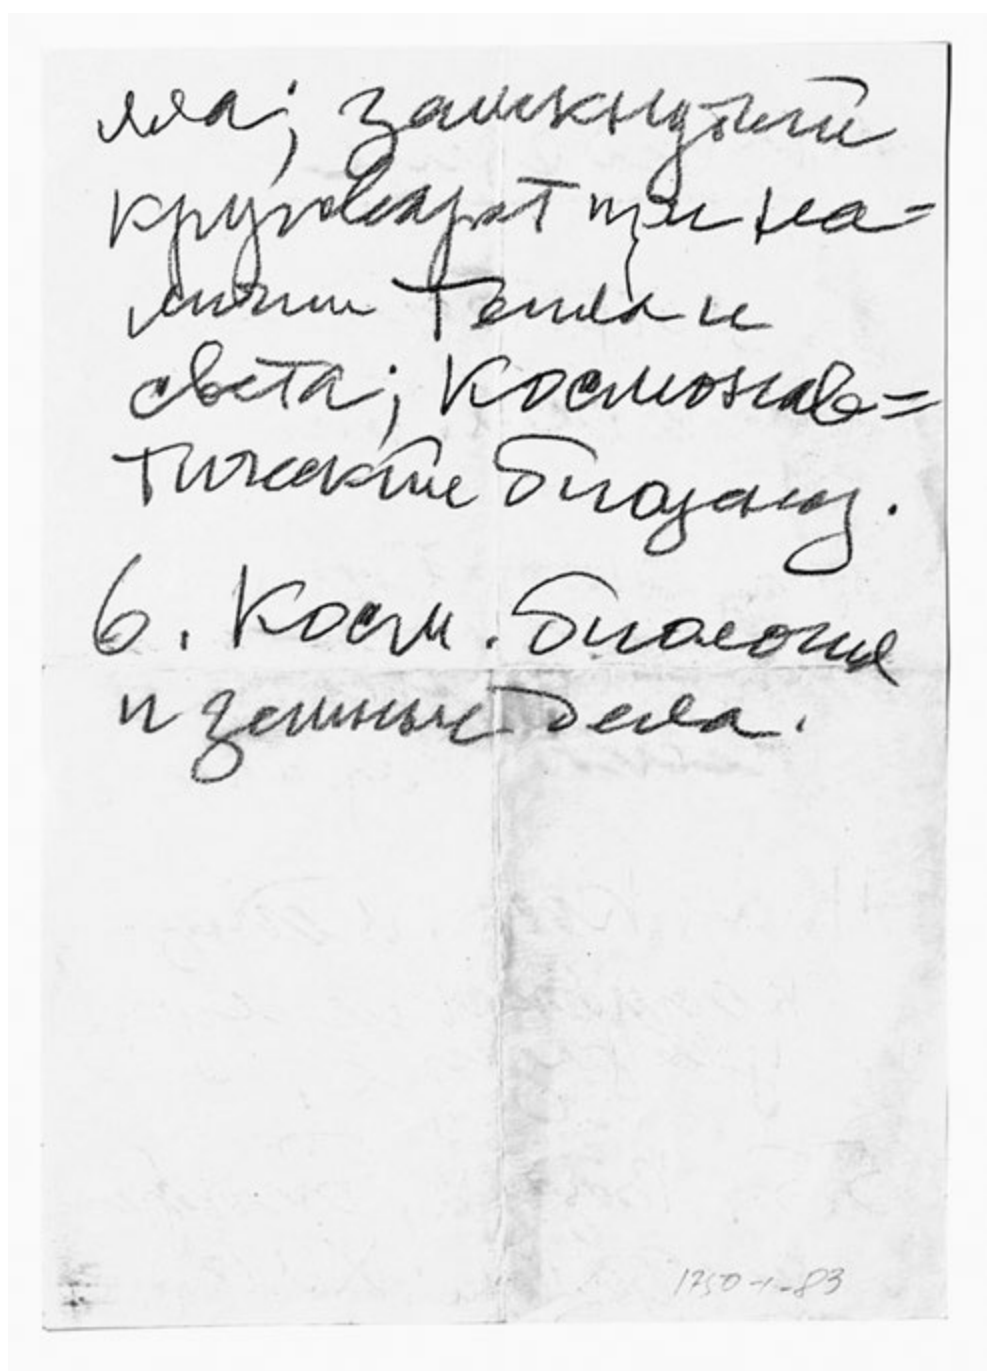 лла; замкнутый
круговорот при на=
личии тепла и
света; космонав=
тический биоценоз.
6. Косм. биология
и земные дела.
1750-1-83